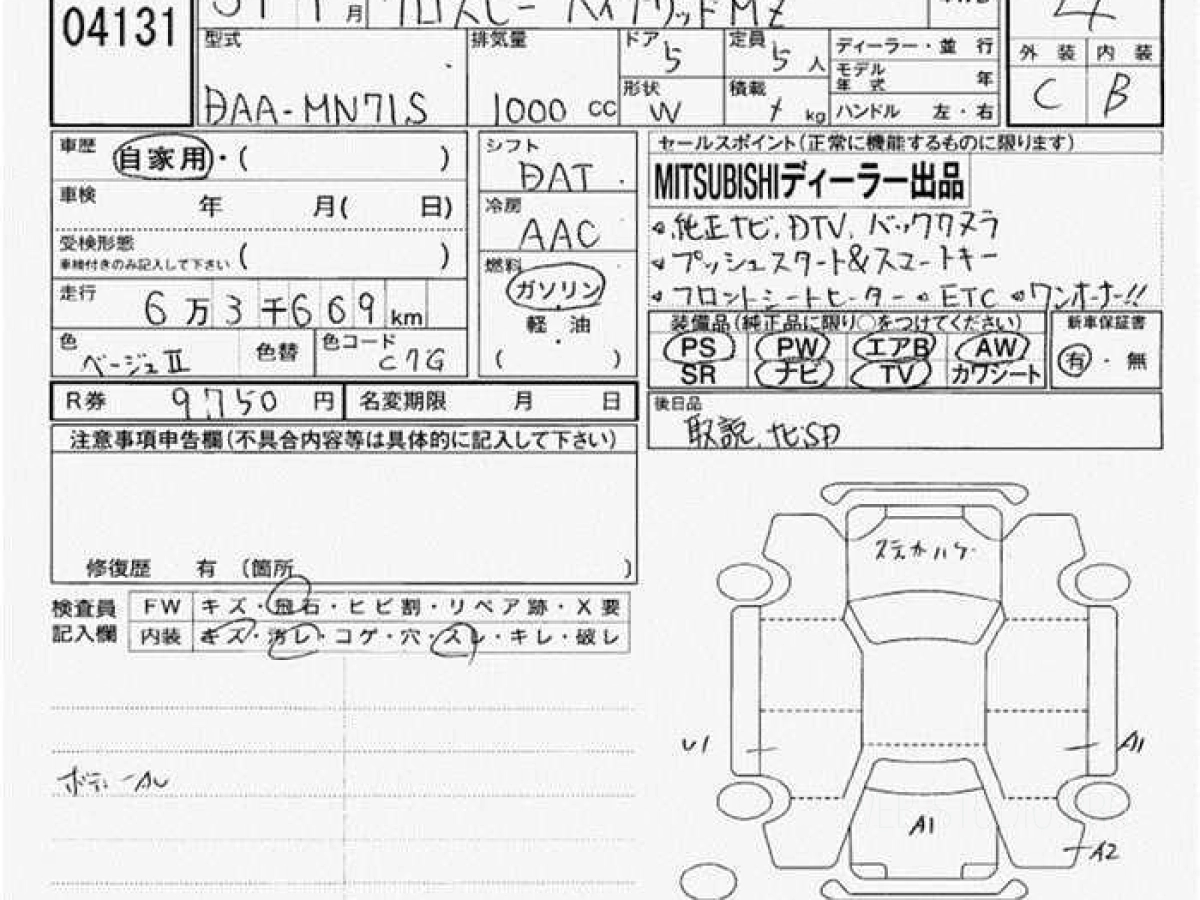 04131
月 クロスビー ハイブリッド MZ
型式 DAA-MN71S
排気量 1000 cc
ドア 5 定員 5 人
形状 W 積載 kg
ディーラー・並 行
モデル年式 年
ハンドル 左・右
4
外 装 内 装
C B
車歴 自家用・( )
車検 年 月( 日)
受検形態 ( )
車検付きのみ記入して下さい
走行 6万3千669 km
色 ベージュⅡ 色替 色コード C7G
シフト DAT
冷房 AAC
燃料 ガソリン
軽・油
( )
セールスポイント(正常に機能するものに限ります)
MITSUBISHIディーラー出品
純正ナビ、DTV、バックカメラ
プッシュスタート&スマートキー
フロントシートヒーター ETC ワンオーナー!!
装備品(純正品に限り○をつけてください)
PS PW エアB AW
SR ナビ TV カワシート
新車保証書
有・無
R券 9,750 円 名変期限 月 日
後日品
取説、ナビSD
注意事項申告欄(不具合内容等は具体的に記入して下さい)
修復歴 有 (箇所 )
検査員記入欄
FW キズ・飛石・ヒビ割・リペア跡・X要
内装 キズ・汚レ・コゲ・穴・スレ・キレ・破レ
ボディーAU
U1
A1
A1
A2